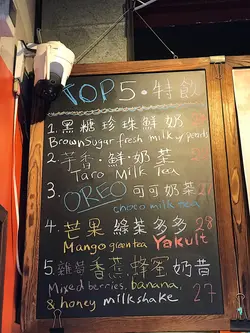 TOP 5・特飲
1. 黑糖珍珠鮮奶
Brown Sugar fresh milk w/ pearls
2. 芋香・鮮・奶茶 27
Taro Milk Tea
3. OREO 可可奶茶 27
choco milk tea
4. 芒果綠茶多多 28
Mango green tea Yakult
5. 雜莓香蕉蜂蜜奶昔
Mixed berries, banana,
& honey milkshake 27